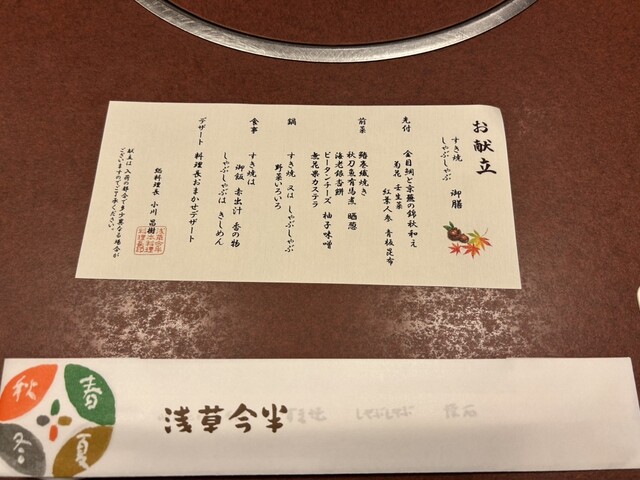 お献立
すき焼
しゃぶしゃぶ
御膳
先付
金目鯛と京蕪の錦秋和え
菊花 壬生菜
紅葉人参 青板昆布
前菜
鮭巻繊焼き
秋刀魚有馬煮 晒葱
海老銀杏餅
ピータンチーズ 柚子味噌
無花果カステラ
鍋
すき焼 又は しゃぶしゃぶ
野菜いろいろ
食事
すき焼は
御飯 赤出汁 香の物
しゃぶしゃぶは きしめん
デザート 料理長おまかせデザート
総料理長 小川昌樹
献立は入荷の都合で多少異なる場合が
ございますのでご了承ください。
春
夏
秋
冬
浅草今半
しゃぶしゃぶ